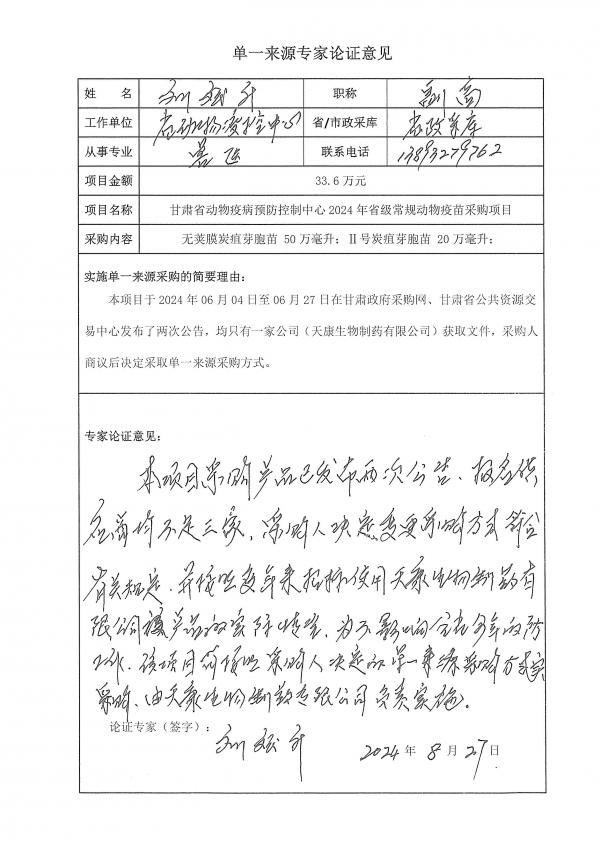 单一来源专家论证意见
姓 名 刘 升 职称 副高
工作单位 省动物疫控中心 省/市政采库 省政采库
从事专业 兽医 联系电话 13893279762
项目金额 33.6 万元
项目名称 甘肃省动物疫病预防控制中心 2024 年省级常规动物疫苗采购项目
采购内容 无荚膜炭疽芽胞苗 50 万毫升；Ⅱ号炭疽芽胞苗 20 万毫升；
实施单一来源采购的简要理由：
本项目于 2024 年 06 月 04 日至 06 月 27 日在甘肃政府采购网、甘肃省公共资源交
易中心发布了两次公告，均只有一家公司（天康生物制药有限公司）获取文件，采购人
商议后决定采取单一来源采购方式。
专家论证意见：
本项目采购产品已发布两次公告、报名供
应商均不足三家，采购人决定变更采购方式符合
有关规定，并按照历年来招标使用天康生物制药有
限公司该产品的实际情况，为不影响全省今年的防
疫工作，该项目可按照采购人决定的单一来源采购方式
采购，由天康生物制药有限公司负责实施。
论证专家（签字）： 刘 升
2024 年 8 月 27 日